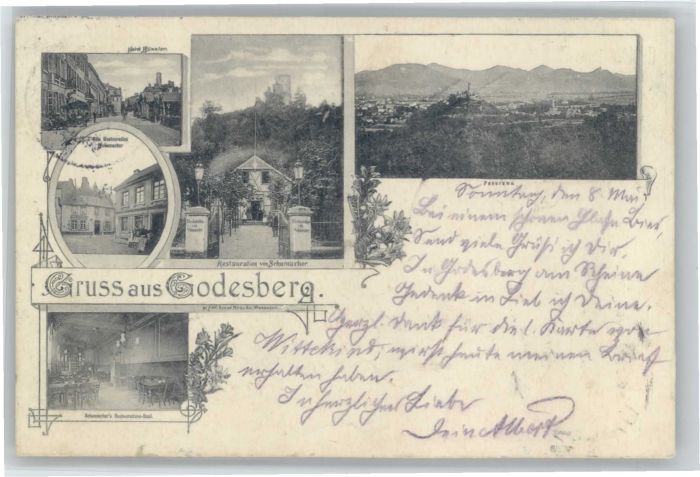 Hotel Hüneken
Alte Restauration
Schumacher
Restauration von Schumacher.
Panorama
Gruss aus Godesberg.
Schumacher's Restaurations-Saal.
Sonntag, den 8. Mai
Bei einem schönen Glase Bier,
Send viele Grüß' ich Dir.
In Godesberg am Rheine
Gedenk in Lieb ich Deine.
Herzl. Dank für die l. Karte von
Wittekind, wirst heute meinen Brief
erhalten haben.
In herzlicher Liebe
Dein Albert